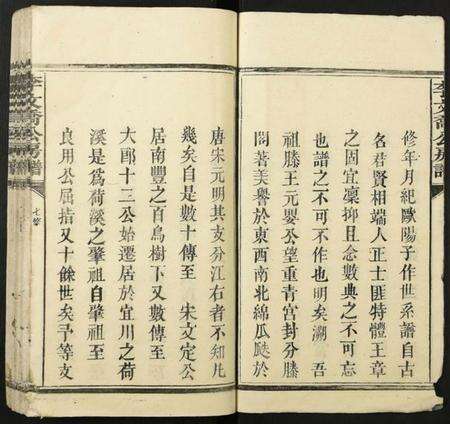 修年月紀歐陽子作世系譜自古
名君賢相端人正士匪特體王章
之固宜凜抑且念數典之不可忘
也譜之不可不作也明矣溯　吾
祖滕王元嬰公望重青宮封分滕
閣著美譽於東西南北綿瓜瓞於
唐宋元明其支分江右者不知凡
幾矣自是數十傳至　宋文定公
居南豐之百鳥樹下又數傳至
大郎十三公始遷居於宜川之荷
溪是為荷溪之肇祖自肇祖至
良用公屈指又十餘世矣予等支
李文喬公房譜
七修